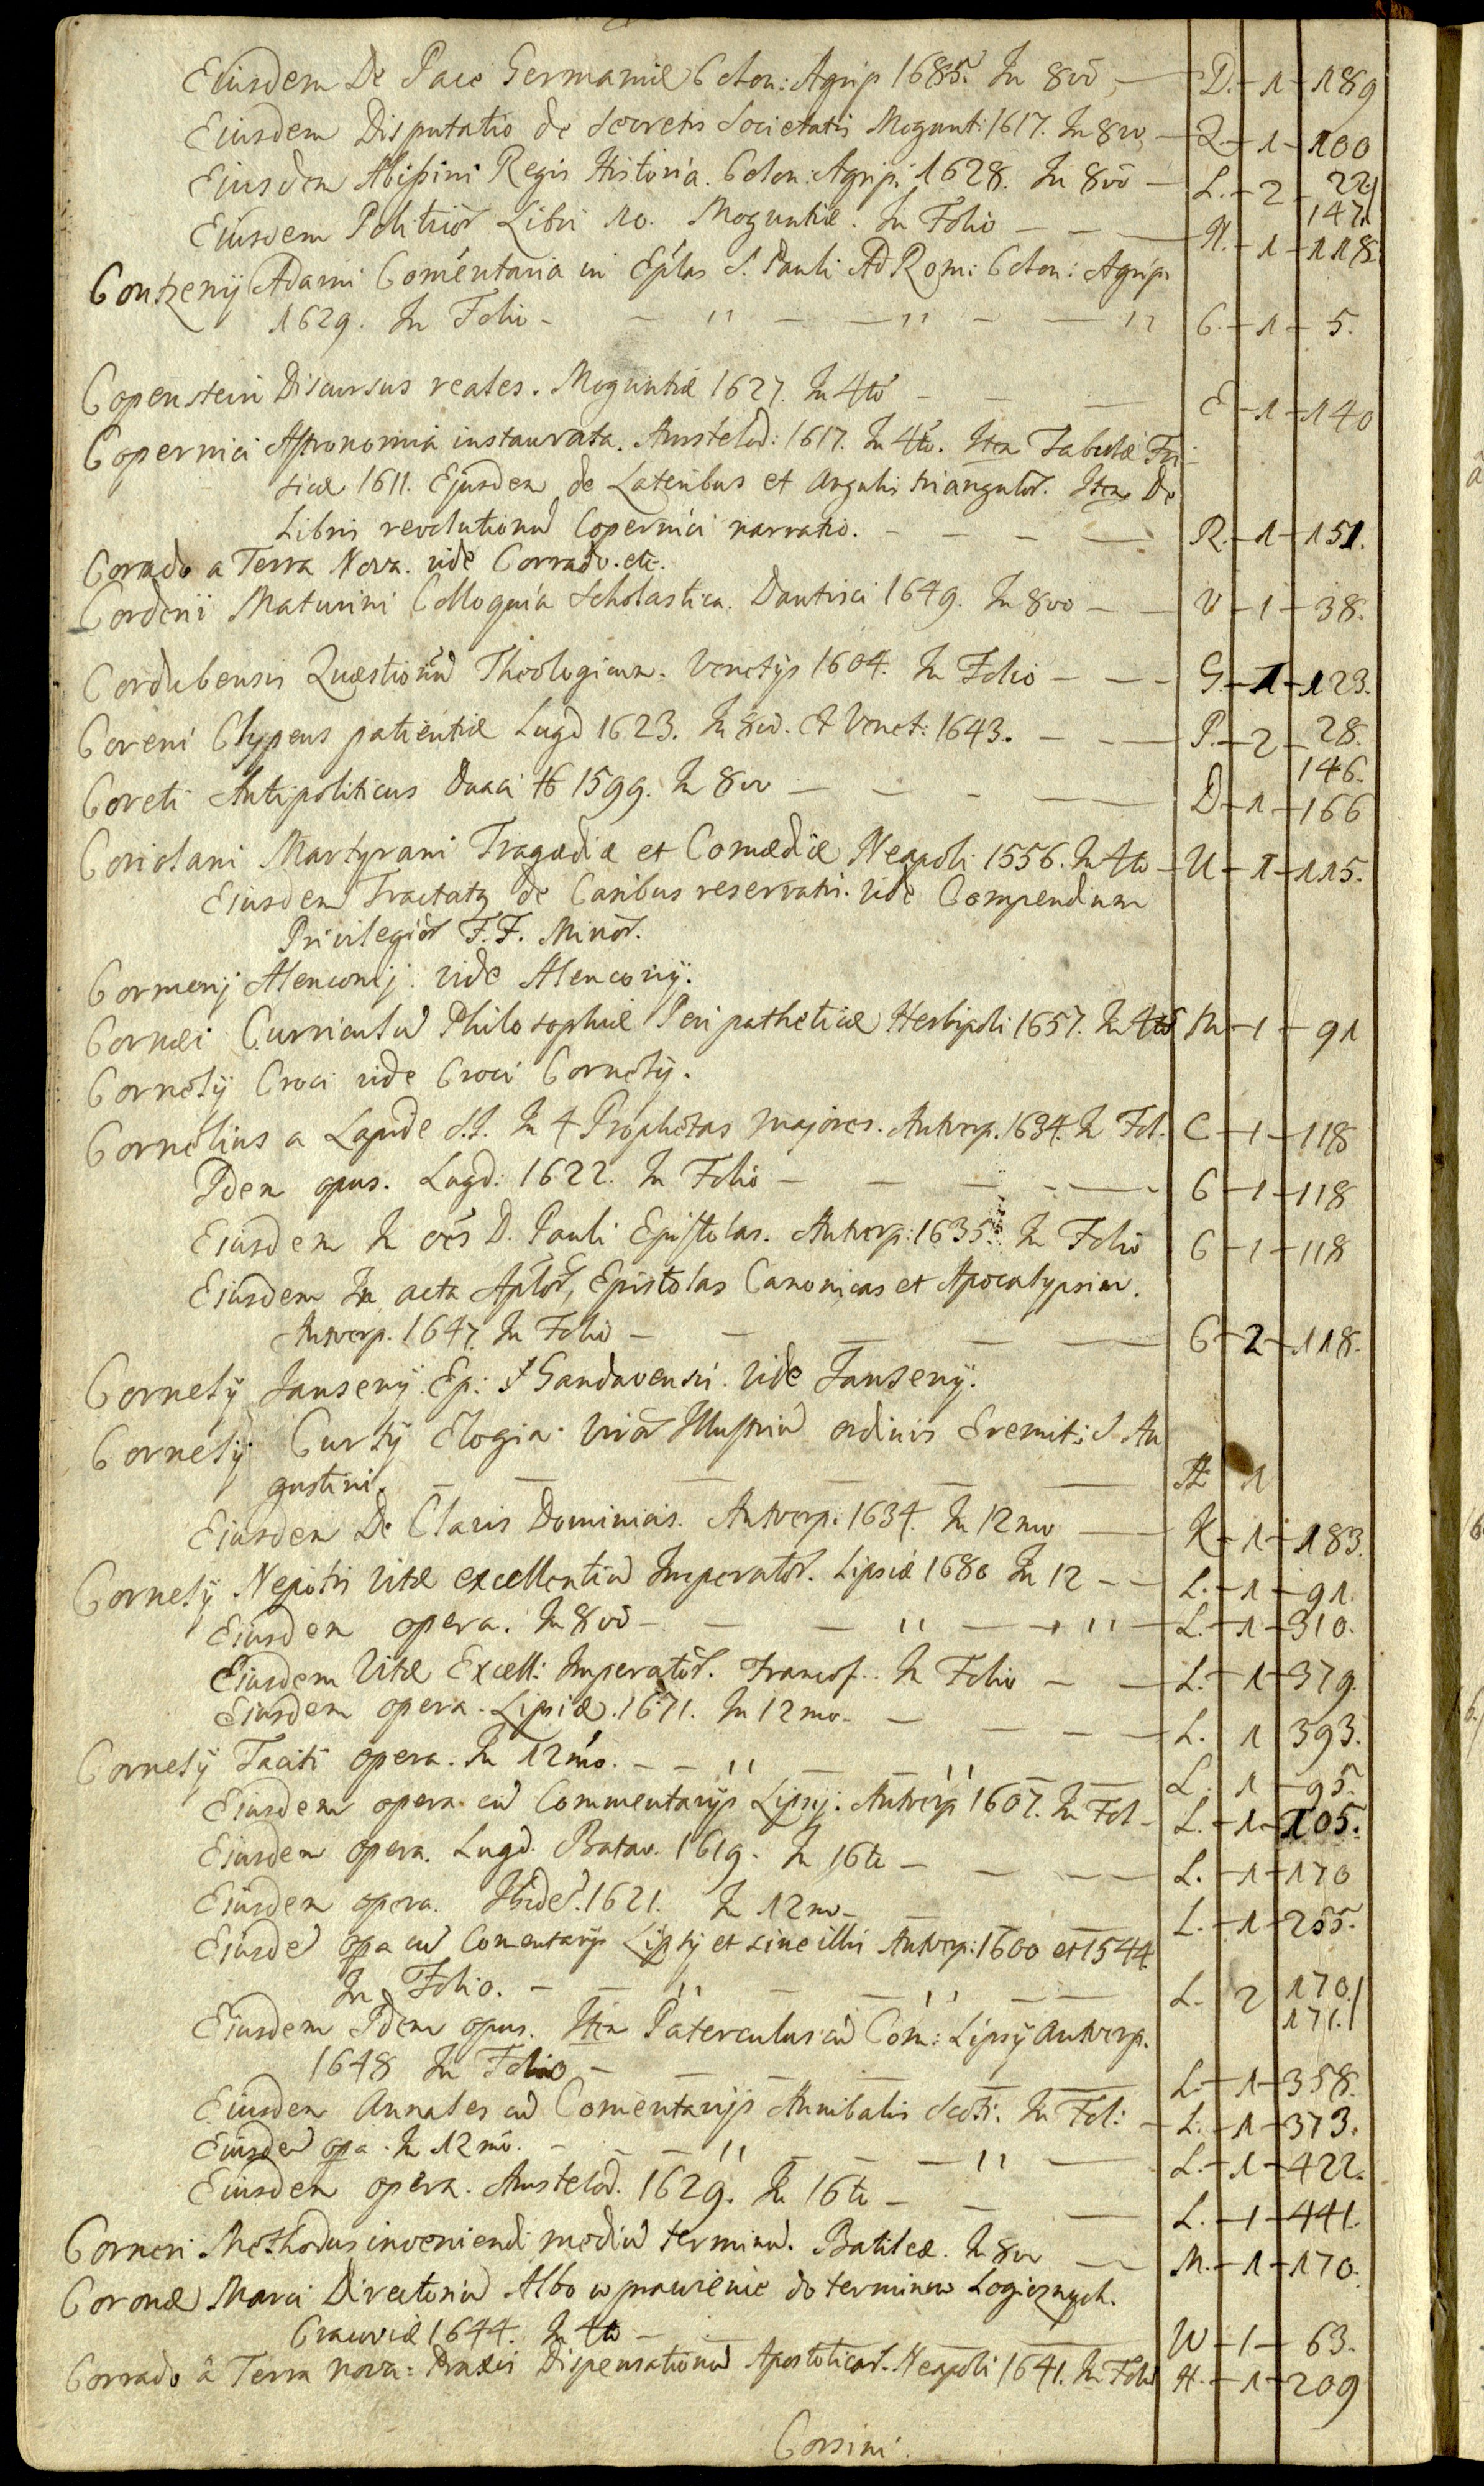 Eiusdem De Pace Germaniæ Colon: Agrip 1685. In 8vo — D. – 1 – 189
Eiusdem Disputatio de Secretis Societatis Mogunt: 1617. In 8vo — Q. – 1 – 100
Eiusdem Abissini Regis Historia. Colon: Agrip. 1628. In 8vo — L. – 2 – 22. 147.
Eiusdem Politicor Libri 10. Moguntiæ. In Folio — N. – 1 – 118.
Contzenij Adami Comentaria in Eplas S. Pauli Ad Rom: Colon: Agrip.
1629. In Folio — " — " — " C. – 1 – 5.
Copenstein Discursus reales. Moguntiæ 1627. In 4to — E – 1 – 140
Copernici Astronomia instaurata. Amstelod: 1617. In 4to. Item Tabulæ Fri
sicæ 1611. Ejusdem de Lateribus et angulis triangulor. Item De
Libris revolutionu Copernici narratio. — R. – 1 – 151.
Corrado a Terra Nova. vide Corrado. etc.
Corderii Maturini Colloquia Scholastica. Dantisci 1649. In 8vo — V – 1 – 38.
Cordubensis Quæstionu Theologicum. Venetijs 1604. In Folio — G. – 1 – 123.
Coreni Clypeus patientiæ Lugd 1623. In 8vo. Et Venet: 1643. — P. – 2 – 28. 146.
Coreti Antipoliticus Duaci 1599. In 8vo — D – 1 – 166
Coriolani Martyrani Tragædiæ et Comædiæ Neapoli 1556. In 4to — U – 1 – 115.
Eiusdem Tractatq de Casibus reservatis. vide Compendium
Privilegior F.F. Minor.
Cormerij Alenconij. vide Alenconij.
Cornæi Curriculu Philosophiæ Peripatheticæ Herbipoli 1657. In 4to M – 1 – 91
Cornelij Croci vide Croci Cornelij.
Cornelius a Lapide S.J. In 4 Prophetas majores. Antverp. 1634. In Fol. C – 1 – 118
Idem opus. Lugd: 1622. In Folio — C – 1 – 118
Eiusdem In oes D. Pauli Epistolas. Antverp: 1635. In Folio C – 1 – 118
Eiusdem In acta Aplor, Epistolas Canonicas et Apocalypsim.
Antverp. 1647. In Folio — C – 2 – 118.
Cornelij Jansenij. Ep: Gandavensis. vide Jansenij.
Cornelij Curtij Elogia Viror Illustriu ordinis Eremit: S Au
gustini. — 1
Eiusdem De Clavis Dominicis. Antverp: 1634. In 12mo — K – 1 – 183.
Cornelij Nepotis Vitæ excellentiu Imperator. Lipsiæ 1680 In 12 — L. – 1 – 91.
Eiusdem opera. In 8vo — " — " — L. – 1 – 310.
Eiusdem Vitæ Excell: Imperator. Francof.. In Folio — L. – 1 – 379.
Eiusdem opera. Lipsiæ. 1671. In 12mo. — L. 1 393.
Cornelij Taciti opera. In 12mo. — " — " — L. 1 – 95.
Eiusdem opera cu Commentarijs Lipsij. Antverp 1607. In Fol — L. – 1 – 105.
Eiusdem opera. Lugd. Batav. 1619. In 16to — L. – 1 – 170
Eiusdem opera. Ibidem. 1621. In 12mo — L. – 1 – 255.
Eiusde opa cu Comentarijs Lipsij et sine illis Antverp: 1600 et 1544
In Folio. — " — " — L. 2 170. 171.
Eiusdem Idem opus. Item Paterculus cu Com: Lipsij Antverp.
1648 In Folio — L. – 1 – 358.
Eiusdem Annales cu Comentarijs Annibalis Scoti. In Fol: — L. – 1 – 373.
Eiusde opa. In 12mo. — " — " — L. – 1 – 422.
Eiusdem opera. Amstelod. 1629. In 16to — L. – 1 – 441.
Corneri Methodus inveniendi mediu terminu. Basileæ. In 8vo — M. – 1 – 170.
Coronæ Marci Directoriu Albo wprawienie do terminow Logicznych.
Cracoviæ 1644. In 4to — W – 1 – 63.
Corrado â Terra nova: Praxis Dispensationu Apostolicar. Neapoli 1641. In Folio H. – 1 – 209
Corsini.